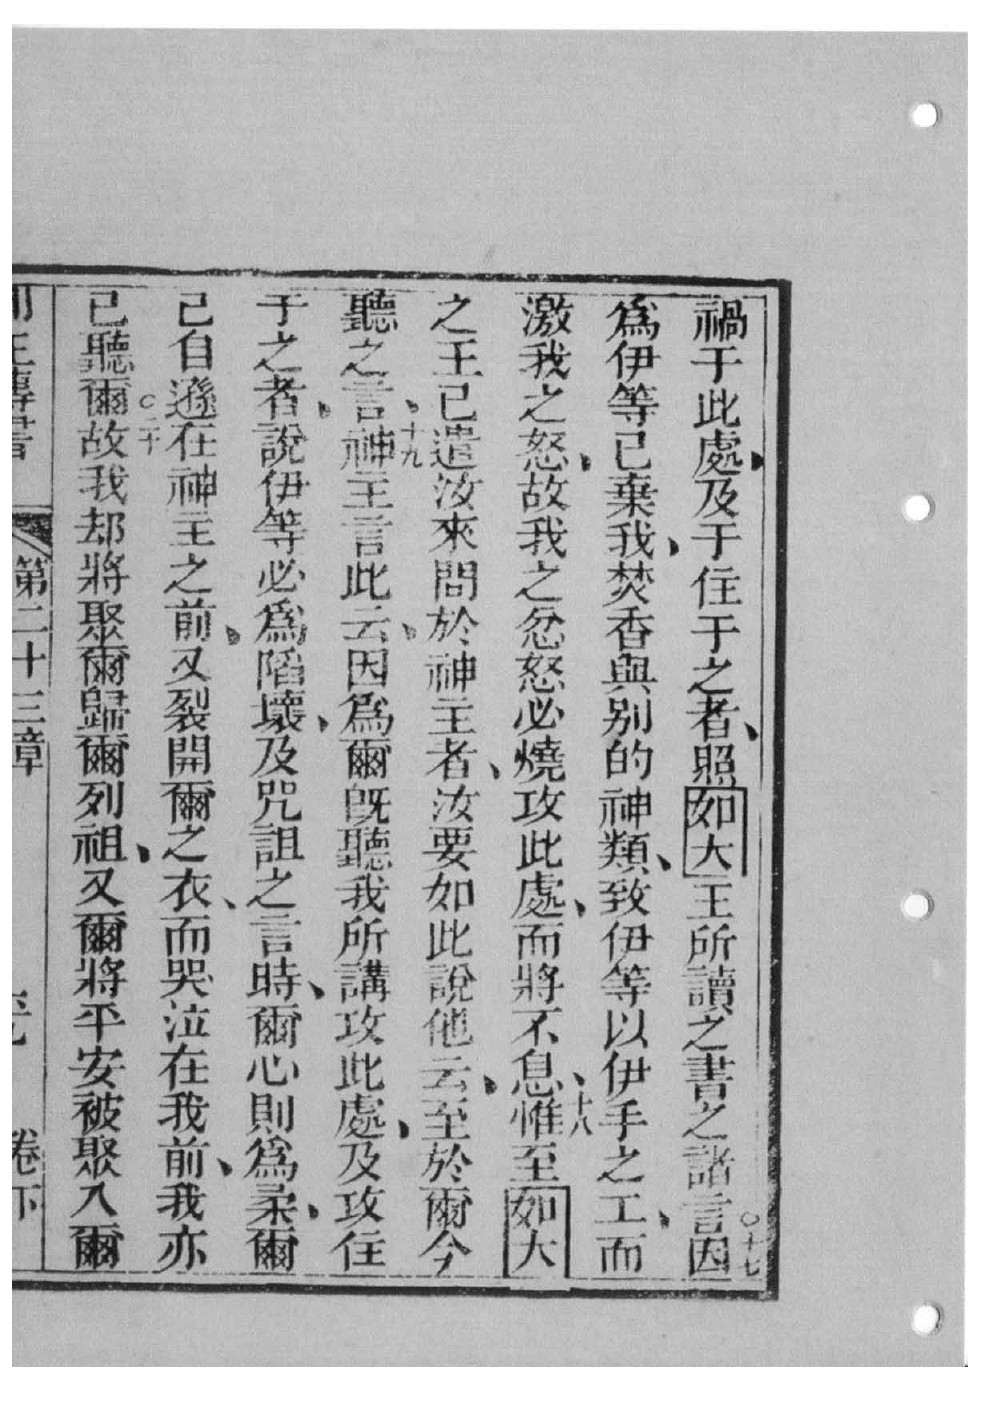 禍于此處、及于住于之者、照如大王所讀之書之諸言○十七因
爲伊等已棄我、焚香與別的神類、致伊等以伊手之工、而
激我之怒、故我之忿怒必燒攻此處、而將不息、十八惟至如大
之王已遣汝來問於神主者、汝要如此說他云、至於爾今
聽之言、十九神主言此云、因爲爾既聽我所講攻此處、及攻住
于之者、說伊等必爲陷壞、及咒詛之言時、爾心則爲柔、爾
己自遜在神主之前、又裂開爾之衣、而哭泣在我前、我亦
已聽爾○二十故我却將聚爾歸爾列祖、又爾將平安被聚入爾
列王傳書 第二十三章 卷下